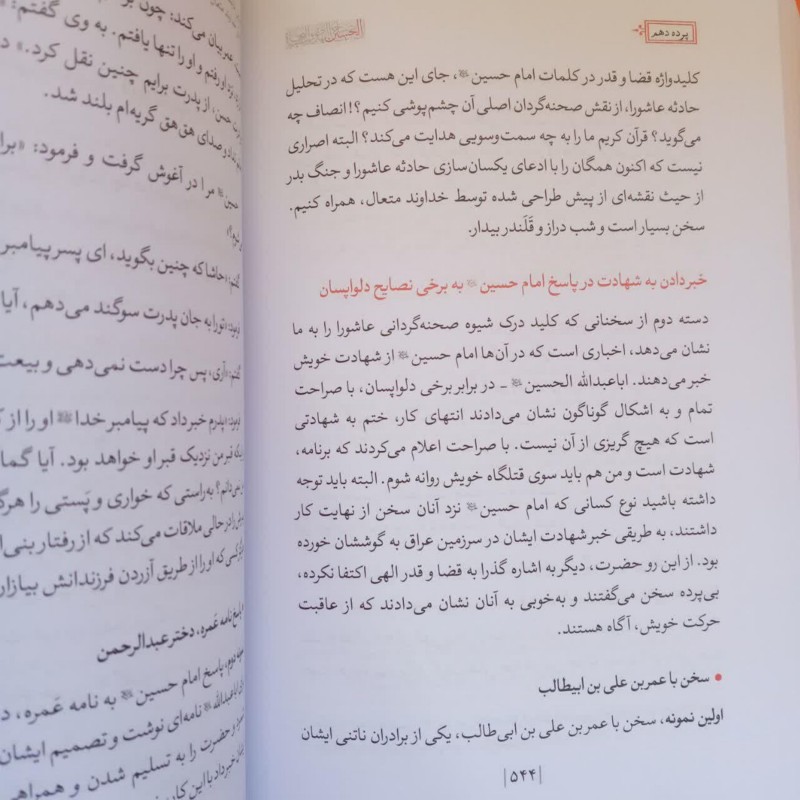 پرده دهم
کلیدواژه قضا و قدر در کلمات امام حسین، جای این هست که در تحلیل
حادثه عاشورا، از نقش صحنه‌گردان اصلی آن چشم‌پوشی کنیم؟! انصاف چه
می‌گوید؟ قرآن کریم ما را به چه سمت‌وسویی هدایت می‌کند؟ البته اصراری
نیست که اکنون همگان را با ادعای یکسان‌سازی حادثه عاشورا و جنگ بدر
از حیث نقشه‌ای از پیش طراحی شده توسط خداوند متعال، همراه کنیم.
سخن بسیار است و شب دراز و قَلَندر بیدار.
خبر دادن به شهادت در پاسخ امام حسین به برخی نصایح دلواپسان
دسته دوم از سخنانی که کلید درک شیوه صحنه‌گردانی عاشورا را به ما
نشان می‌دهد، اخباری است که در آن‌ها امام حسین از شهادت خویش
خبر می‌دهند. اباعبدالله الحسین ـ در برابر برخی دلواپسان، با صراحت
تمام و به اشکال گوناگون نشان می‌دادند انتهای کار، ختم به شهادتی
است که هیچ گریزی از آن نیست. با صراحت اعلام می‌کردند که برنامه،
شهادت است و من هم باید سوی قتلگاه خویش روانه شوم. البته باید توجه
داشته باشید نوع کسانی که امام حسین نزد آنان سخن از نهایت کار
داشتند، به طریقی خبر شهادت ایشان در سرزمین عراق به گوششان خورده
بود. از این رو حضرت، دیگر به اشاره گذرا به قضا و قدر الهی اکتفا نکرده،
بی‌پرده سخن می‌گفتند و به‌خوبی به آنان نشان می‌دادند که از عاقبت
حرکت خویش، آگاه هستند.
• سخن با عمر بن علی بن ابیطالب
اولین نمونه، سخن با عمر بن علی بن ابی‌طالب، یکی از برادران ناتنی ایشان
|۵۴۴|
بیان می‌کند: چون
رفتم و او را تنها یافتم. به وی گفتم:
از پدرت برایم چنین نقل کرد.»
و صدای هق‌هق گریه‌ام بلند شد.
مرا در آغوش گرفت و فرمود:
حاشا که چنین بگوید، ای پسر پیامبر
تو را به جان پدرت سوگند می‌دهم، آیا
آری، پس چرا دست نمی‌دهی و بیعت
پدرم خبر داد که پیامبر خدا او را از
قبر من نزدیک قبر او خواهد بود. آیا
به‌راستی که خواری و پَستی را
در حالی ملاقات می‌کند که از رفتار
که او را از طریق آزردن فرزندانش
نامه عَمره، دختر عبدالرحمن
پاسخ امام حسین به نامه عَمره،
نامه‌ای نوشت و تصمیم ایشان
حضرت را به تسلیم شدن و